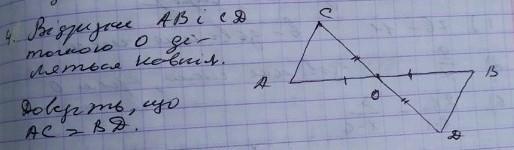 4. Відрізки AB і CD
точкою О ді-
ляться навпіл.
Доведіть, що
AC = BD.
C
A
B
O
D